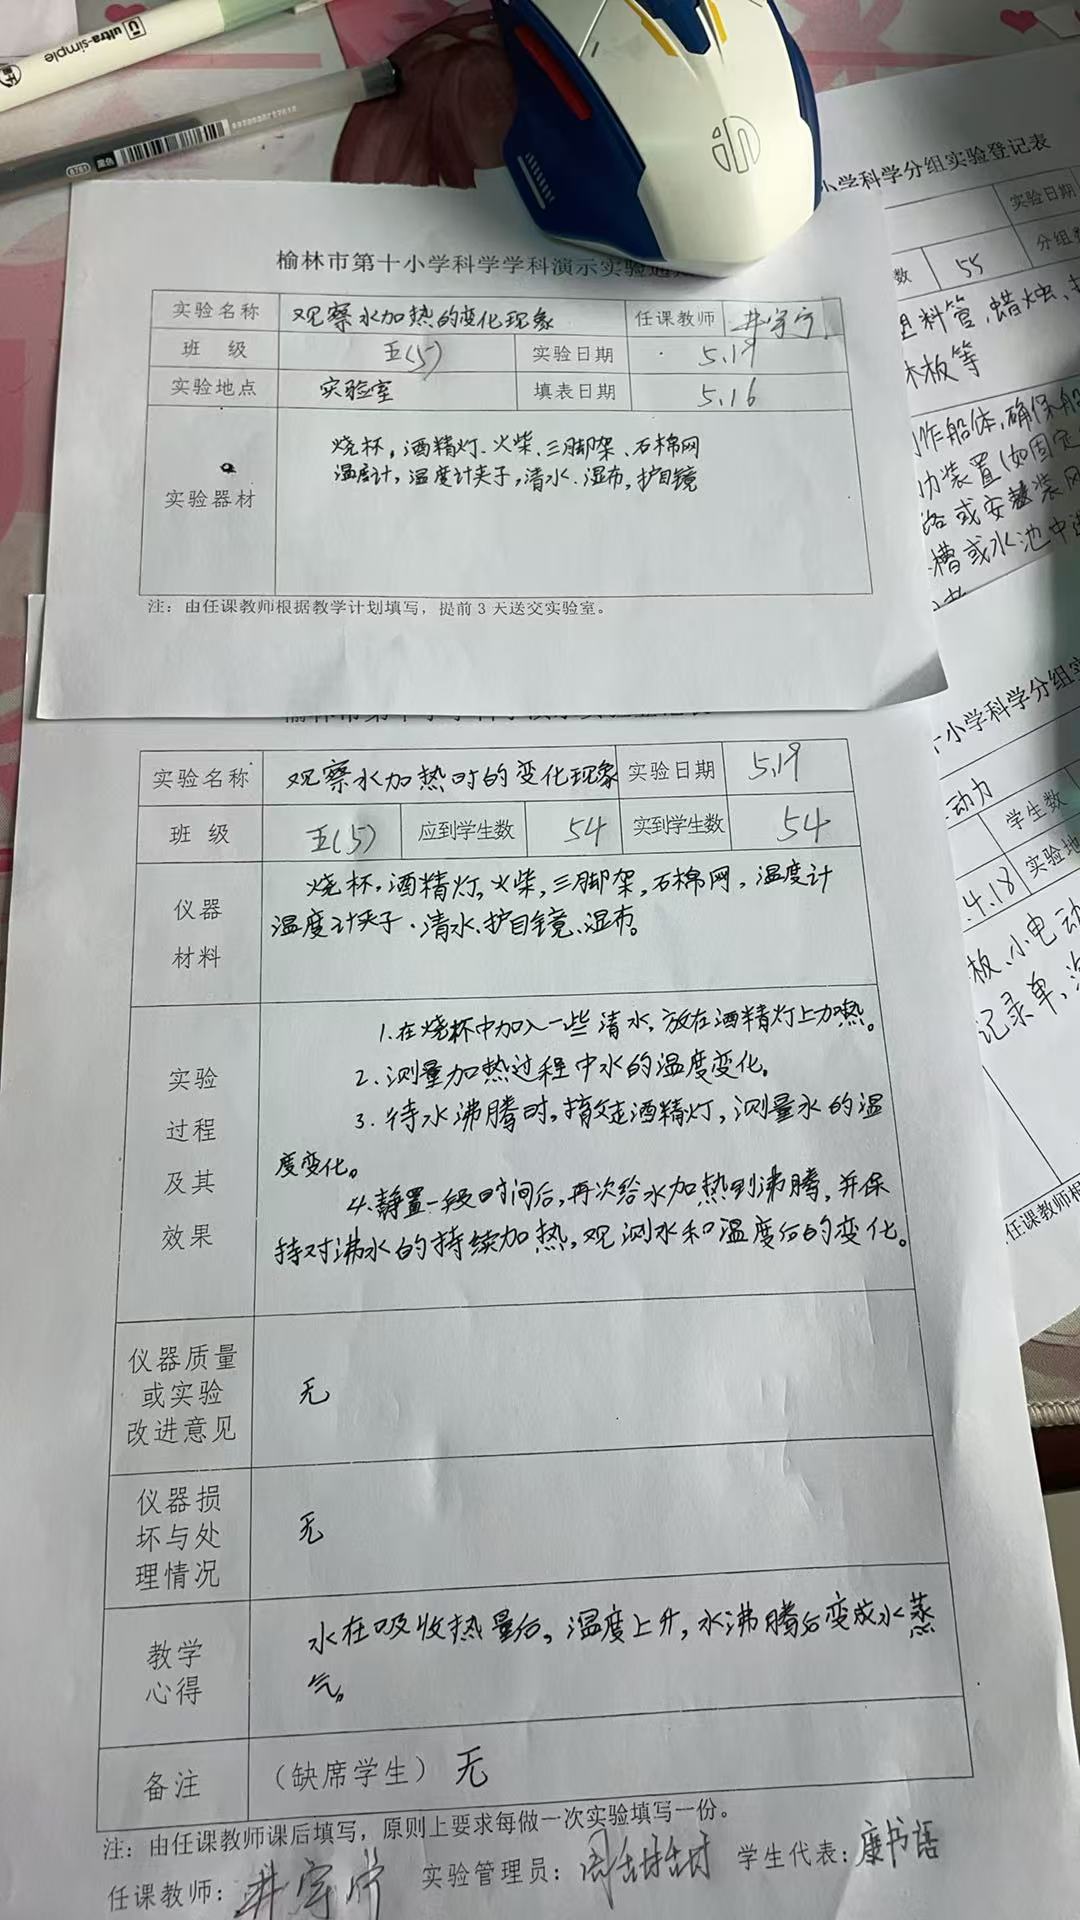 ultra-simple
黑色
小学科学分组实验登记表
实验日期
数 55 分组
料管、蜡烛、
木板等
作船体,确保船
装置(如固定
路或安装风
槽或水池中
榆林市第十小学科学学科演示实验通
实验名称 观察水加热的变化现象 任课教师 井宇宁
班 级 五(5) 实验日期 5.19
实验地点 实验室 填表日期 5.16
实验器材
烧杯,酒精灯、火柴、三脚架、石棉网
温度计,温度计夹子,清水、湿布,护目镜
注:由任课教师根据教学计划填写,提前3天送交实验室。
小学科学分组实
动力
学生数
4.18 实验地
板、小电动
记录单、
任课教师根
实验名称 观察水加热时的变化现象 实验日期 5.19
班 级 五(5) 应到学生数 54 实到学生数 54
仪器
材料
烧杯,酒精灯,火柴,三脚架,石棉网,温度计
温度计夹子、清水、护目镜、湿布。
实验
过程
及其
效果
1.在烧杯中加入一些清水,放在酒精灯上加热。
2.测量加热过程中水的温度变化。
3.待水沸腾时,撤走酒精灯,测量水的温
度变化。
4.静置一段时间后,再次给水加热到沸腾,并保
持对沸水的持续加热,观测水和温度后的变化。
仪器质量
或实验
改进意见
无
仪器损
坏与处
理情况
无
教学
心得
水在吸收热量后,温度上升,水沸腾后变成水蒸
气。
备注 (缺席学生) 无
注:由任课教师课后填写,原则上要求每做一次实验填写一份。
任课教师: 井宇宁 实验管理员: 周甜甜 学生代表: 康书语